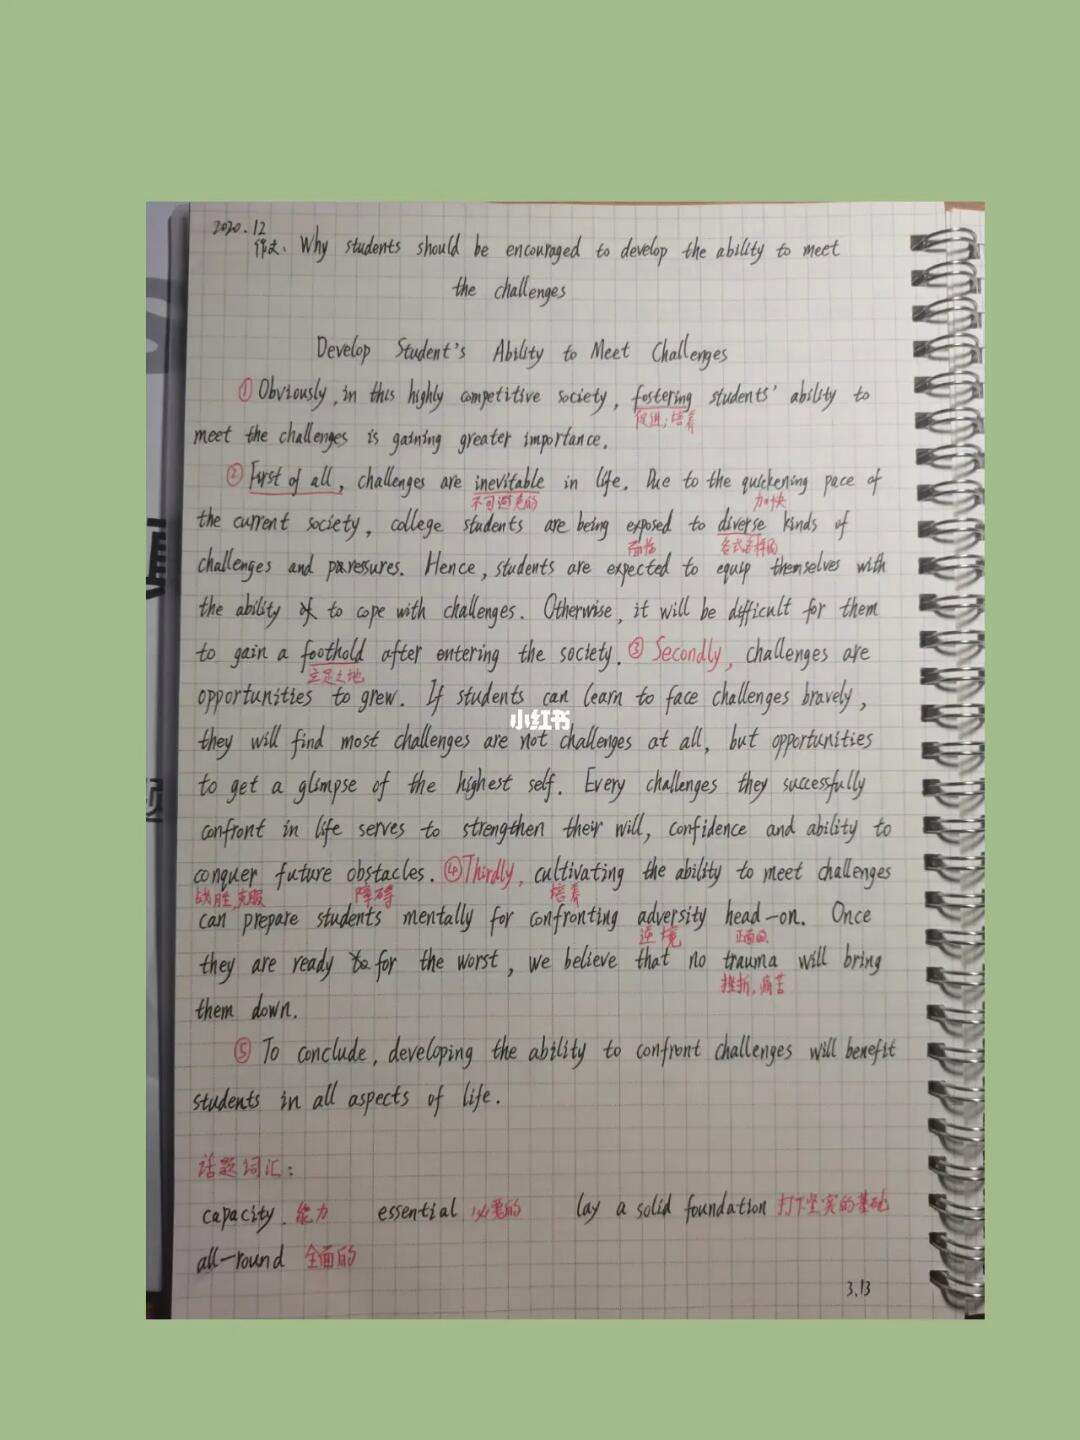 2020.12
作文: Why students should be encouraged to develop the ability to meet
the challenges
Develop Student's Ability to Meet Challenges
① Obviously, in this highly competitive society, fostering students' ability to
促进;培养
meet the challenges is gaining greater importance.
② First of all, challenges are inevitable in life. Due to the quickening pace of
不可避免的 加快
the current society, college students are being exposed to diverse kinds of
面临 各式各样的
challenges and pressures. Hence, students are expected to equip themselves with
the ability to cope with challenges. Otherwise, it will be difficult for them
to gain a foothold after entering the society. ③ Secondly, challenges are
立足之地
opportunities to grew. If students can learn to face challenges bravely,
小红书
they will find most challenges are not challenges at all, but opportunities
to get a glimpse of the highest self. Every challenges they successfully
confront in life serves to strengthen their will, confidence and ability to
conquer future obstacles. ④ Thirdly, cultivating the ability to meet challenges
战胜,克服 障碍 培养
can prepare students mentally for confronting adversity head-on. Once
逆境 正面的
they are ready for the worst, we believe that no trauma will bring
挫折,痛苦
them down.
⑤ To conclude, developing the ability to confront challenges will benefit
students in all aspects of life.
话题词汇:
capacity. 能力 essential 必要的 lay a solid foundation 打下坚实的基础
all-round 全面的
3.13